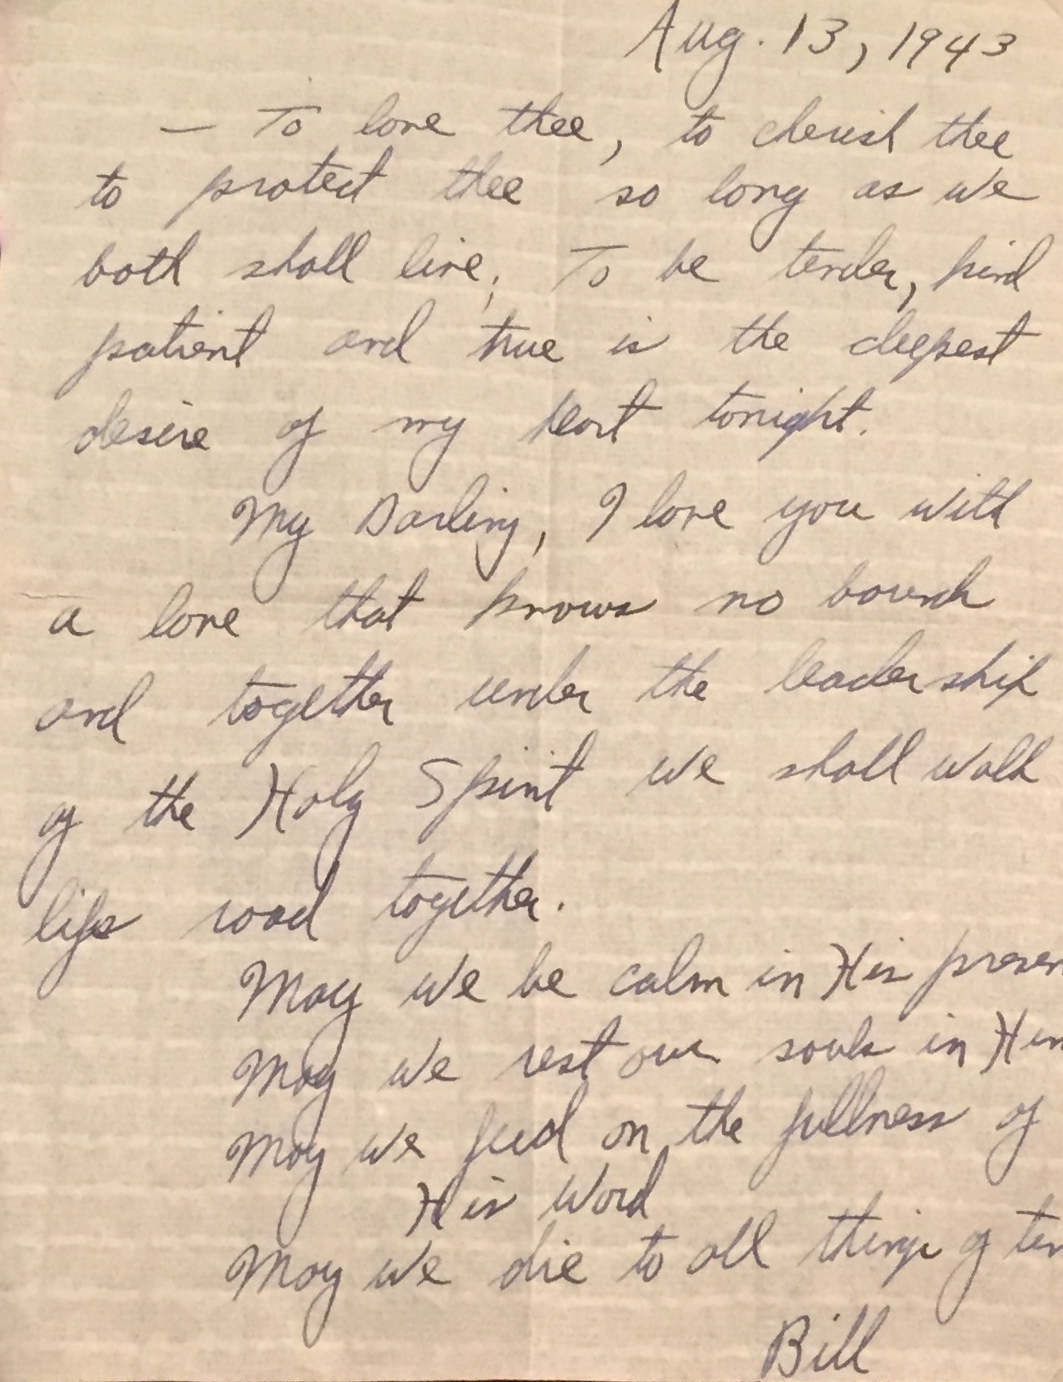 Aug. 13, 1943
— To love thee, to cherish thee
to protect thee so long as we
both shall live; To be tender, kind
patient and true is the deepest
desire of my heart tonight.
My Darling, I love you with
a love that knows no bounds
and together under the leadership
of the Holy Spirit we shall walk
life road together.
May we be calm in His presen
May we rest our souls in Him
May we feed on the fullness of
His Word
May we die to all things of
Bill